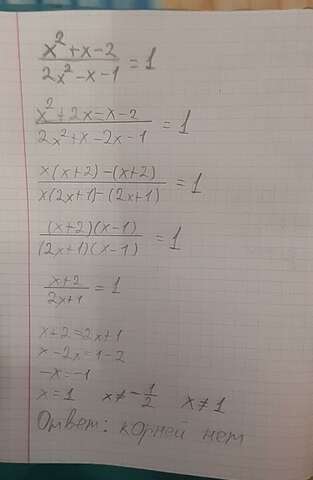 x²+x-2 / 2x²-x-1 = 1
x²+2x-x-2 / 2x²+x-2x-1 = 1
x(x+2)-(x+2) / x(2x+1)-(2x+1) = 1
(x+2)(x-1) / (2x+1)(x-1) = 1
x+2 / 2x+1 = 1
x+2=2x+1
x-2x=1-2
-x=-1
x=1 x≠-1/2 x≠1
Ответ: корней нет